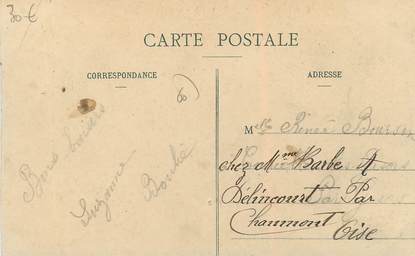 30 €
CARTE POSTALE
CORRESPONDANCE
ADRESSE
60
Bons baisers
Suzanne
M^elle Renée
chez M^me Barbe A
Délincourt Par
Chaumont Oise